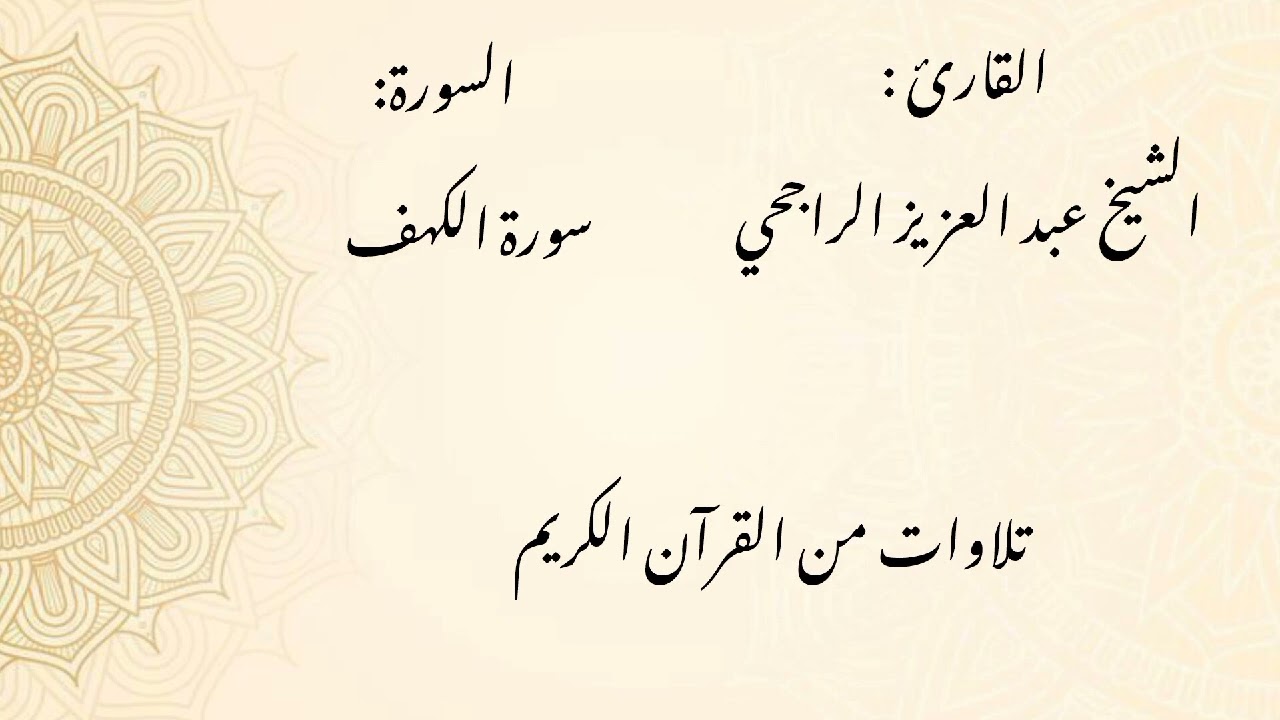 القارئ :
السورة:
الشيخ عبد العزيز الراجحي
سورة الكهف
تلاوات من القرآن الكريم